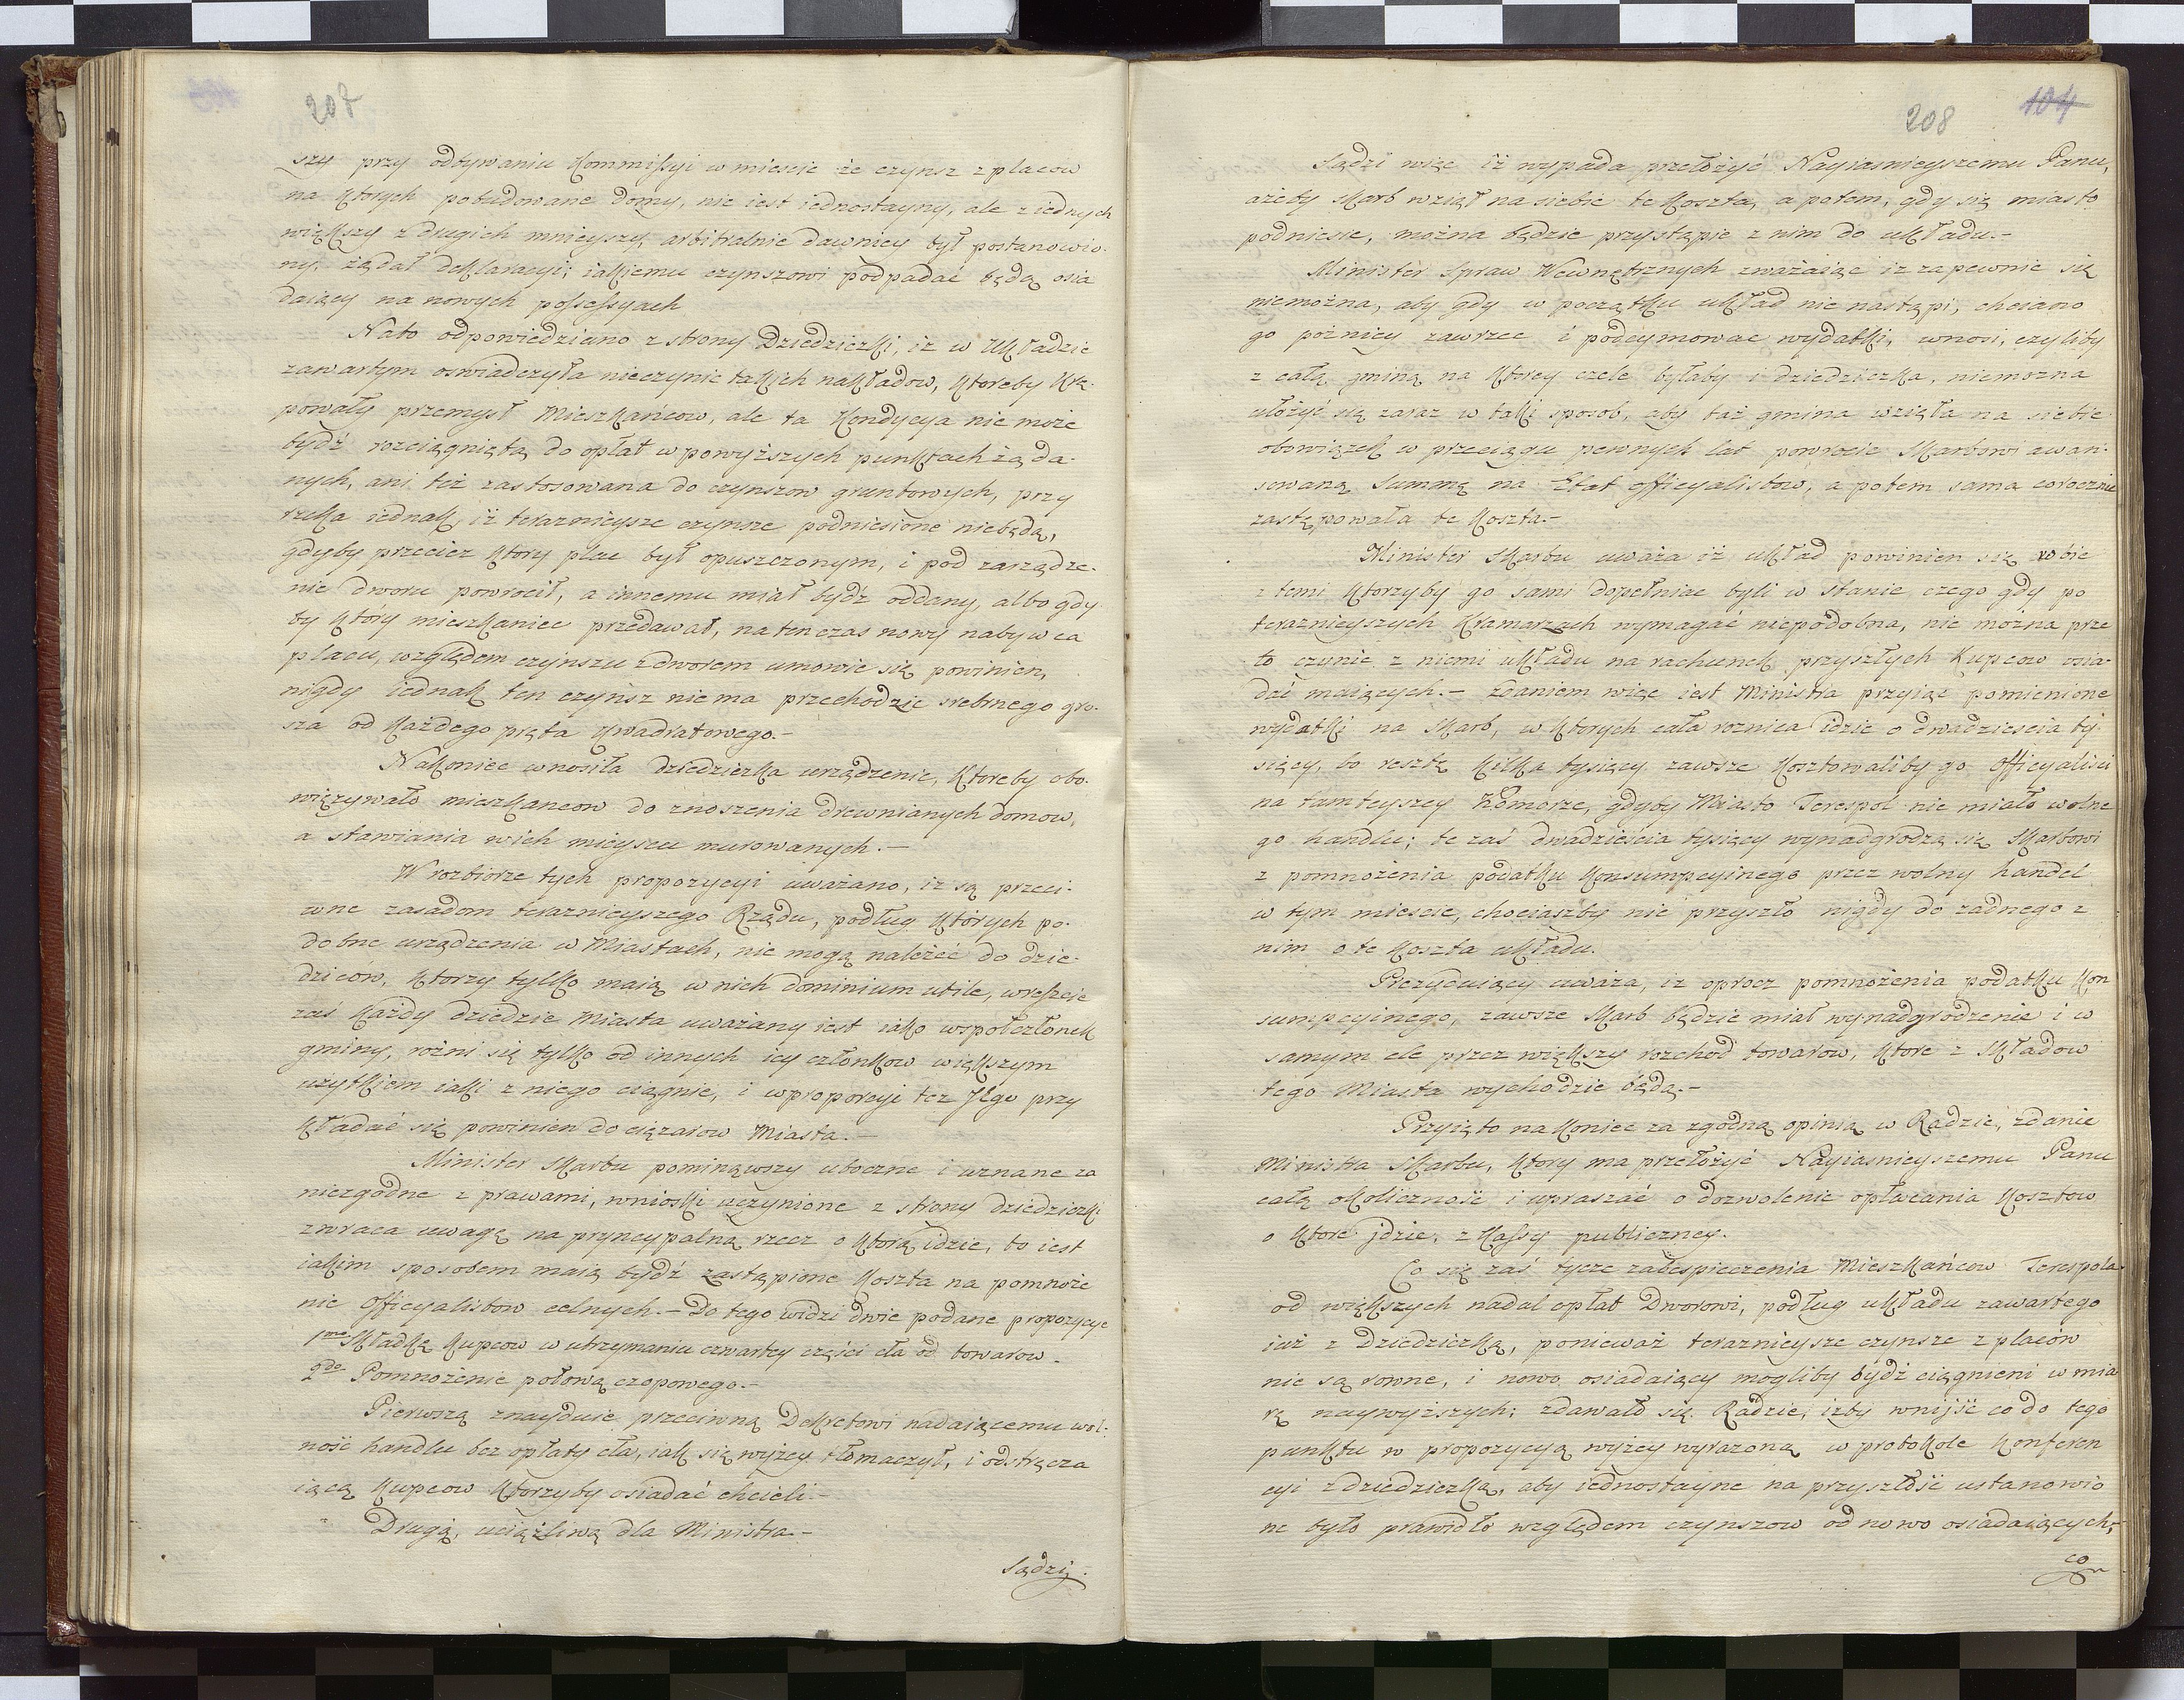 207
szy przy odbywaniu Kommissyi w miescie że czynsz z placow
na ktorych pobudowane domy, nie iest iednostayny, ale z iednych
większy z drugich mnieyszy, arbitralnie dawniey był postanowio-
ny. żądał deklaracyi; iakiemu czynszowi podpadać będą osia
daiący na nowych possessyach
Nato odpowiedziano z strony Dziedziczki, iż w Układzie
zawartym oswiadczyła nieczynic takich nakładow, ktoreby krę-
powały przemysł Mieszkańcow, ale ta Kondycya nie może
bydź rozciągniętą do opłat w powyższych punktach żąda-
nych, ani też zastosowana do czynszow gruntowych, przy
rzeka iednak, iż teraznieysze czynsze podniesione niebędą,
gdyby przecież ktory plac był opuszczonym, i pod zarządze-
nie dworu powrocił, a innemu miał bydź oddany, albo gdy
by który mieszkaniec przedawał, na ten czas nowy nabywca
placu, względem czynszu z dworem umowic się powinien,
nigdy iednak ten czynsz nie ma przechodzic srebrnego gro-
sza od każdego pręta kwadratowego.-
Nakoniec wnosiła dziedziczka urządzenie, ktoreby obo-
więzywało mieszkancow do znoszenia drewnianych domow,
a stawiania w ich mieyscu murowanych.-
W rozbiorze tych propozycyi uważano, iż są przeci-
wne zasadom teraznieyszego Rządu, podług których po-
dobne urządzenia w Miastach, nie mogą należeć do dzie-
dziców, ktorzy tylko maią w nich dominium utile, wreszcie
zaś każdy dziedzic Miasta uważany iest iako wspołczłonek
gminy, rożni się tylko od innych iey członkow większym
użytkiem iaki z niego ciągnie, i w proporcyi tez Jego przy
kładać się powinien do ciężarow Miasta.-
Minister Skarbu pominąwszy uboczne i uznane za
niezgodne z prawami, wnioski uczynione z strony dziedziczki
zwraca uwagę na pryncypalną rzecz o ktorą idzie, to iest
iakim sposobem maią bydź zastąpione koszta na pomnoże
nie officyalistow celnych.- Do tego widzi dwie podane propozycye
1mo Składkę kupcow w utrzymaniu czwartey części cła od towarow.
2do Pomnożenie połową czopowego.-
Pierwszą znayduie przeciwną Dekretowi nadaiącemu wol-
ność handlu bez opłaty cła, iak się wyżey tłomaczył, i odstręcza
iącą kupcow ktorzyby osiadać chcieli.-
Drugą, uciążliwą dla Ministra.-
Sądzi.
208
104
Sądzi więc iż wypada przełożyć Nayiasnieyszemu Panu,
ażeby Skarb wziął na siebie te koszta, a potem, gdy się miasto
podniesie, można będzie przystąpic z nim do układu.-
Minister Spraw Wewnętrznych zważaiąc iż zapewnic się
niemożna, aby gdy w początku układ nie nastąpi, chciano
go pożniey zawrzec i podeymowac wydatki, wnosi, czyliby
z całą gminą na ktorey czele byłaby i dziedziczka, niemożna
ułożyć się zaraz w taki sposob, aby taż gmina wzięła na siebie
obowiązek w przeciągu pewnych lat powrocic Skarbowi awan-
sowaną Summę na Etat officyalistow, a potem sama corocznie
zastępowała te koszta.-
Minister Skarbu uważa iż układ powinien się robic
z temi ktorzyby go sami dopełniac byli w stanie czego gdy po
teraznieyszych Kramarzach wymagać niepodobna, nie można prze
to czynic z niemi układu na rachunek przyszłych Kupcow osia-
dać maiących.- zdaniem więc iest Ministra przyiąć pomienione
wydatki na Skarb, w ktorych cała roznica idzie o dwadziescia ty-
sięcy, bo resztę kilka tysięcy zawsze kosztowaliby go officyaliści
na tamteyszey Komorze, gdyby Miasto Terespol nie miało wolne
go handlu; te zaś dwadzieścia tysięcy wynadgrodzą się Skarbowi
z pomnożenia podatku konsumpcyinego przez wolny handel
w tym miescie, chociaszby nie przyszło nigdy do żadnego z
nim o te koszta układu.
Prezyduiący uważa, iż oprocz pomnożenia podatku kon
sumpcyinego, zawsze Skarb będzie miał wynadgrodzenie i w
samym cle przez większy rozchod towarow, ktore z Składow
tego Miasta wychodzic będą.-
Przyięto nakoniec za zgodną opinią w Radzie, zdanie
Ministra Skarbu, ktory ma przełożyć Nayiasnieyszemu Panu
całą okoliczność i upraszać o dozwolenie opłacania kosztow
o ktore jdzie, z Kassy publiczney.
Co się zaś tycze zabespieczenia Mieszkańcow Terespola
od większych nadal opłat Dworowi, podług układu zawartego
iuż z Dziedziczką, ponieważ teraznieysze czynsze z placów
nie są rowne, i nowo osiadaiący mogliby bydź ciągnieni w mia
rę naywyższych; zdawało się Radzie, iżby wnijść co do tego
punktu w propozycyą wyżey wyrażoną w protokole konferen
cyi z dziedziczką, aby iednostayne na przyszłość ustanowio
ne było prawidło względem czynszow od nowo osiadaiących;
co